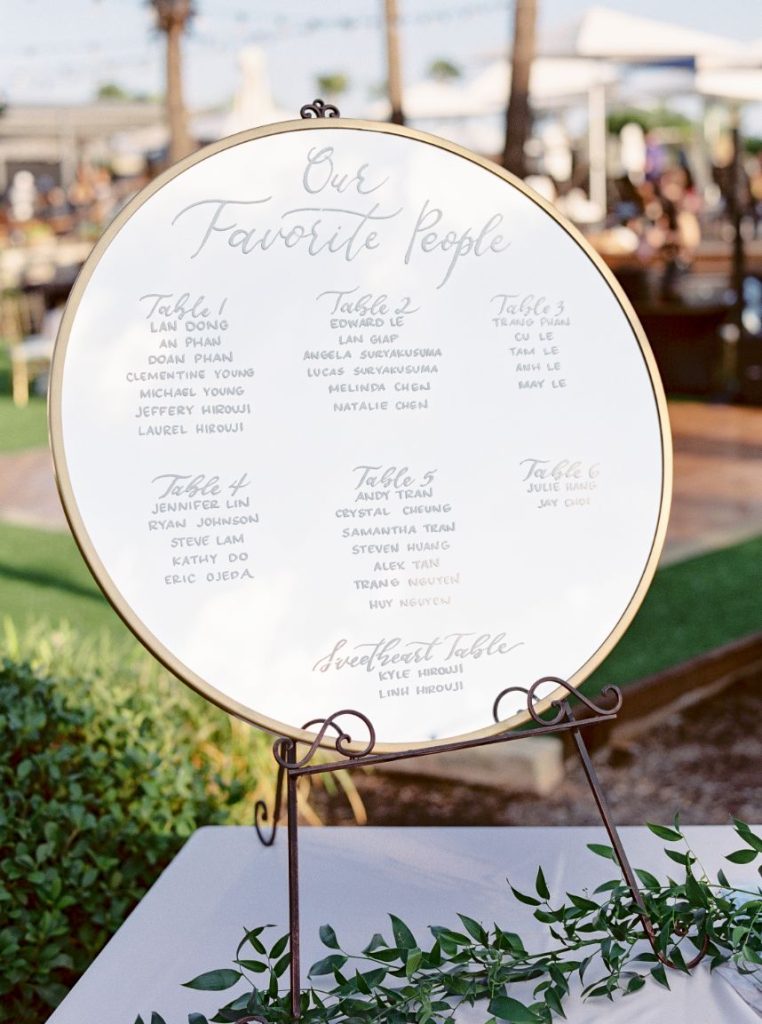 Our
Favorite People
Table 1
LAN DONG
AN PHAN
DOAN PHAN
CLEMENTINE YOUNG
MICHAEL YOUNG
JEFFERY HIROUJI
LAUREL HIROUJI
Table 2
EDWARD LE
LAN GIAP
ANGELA SURYAKUSUMA
LUCAS SURYAKUSUMA
MELINDA CHEN
NATALIE CHEN
Table 3
TRANG PHAN
CU LE
TAM LE
ANH LE
MAY LE
Table 4
JENNIFER LIN
RYAN JOHNSON
STEVE LAM
KATHY DO
ERIC OJEDA
Table 5
ANDY TRAN
CRYSTAL CHEUNG
SAMANTHA TRAN
STEVEN HUANG
ALEK TAN
TRANG NGUYEN
HUY NGUYEN
Table 6
JULIE HANG
JAY CHOI
Sweetheart Table
KYLE HIROUJI
LINH HIROUJI